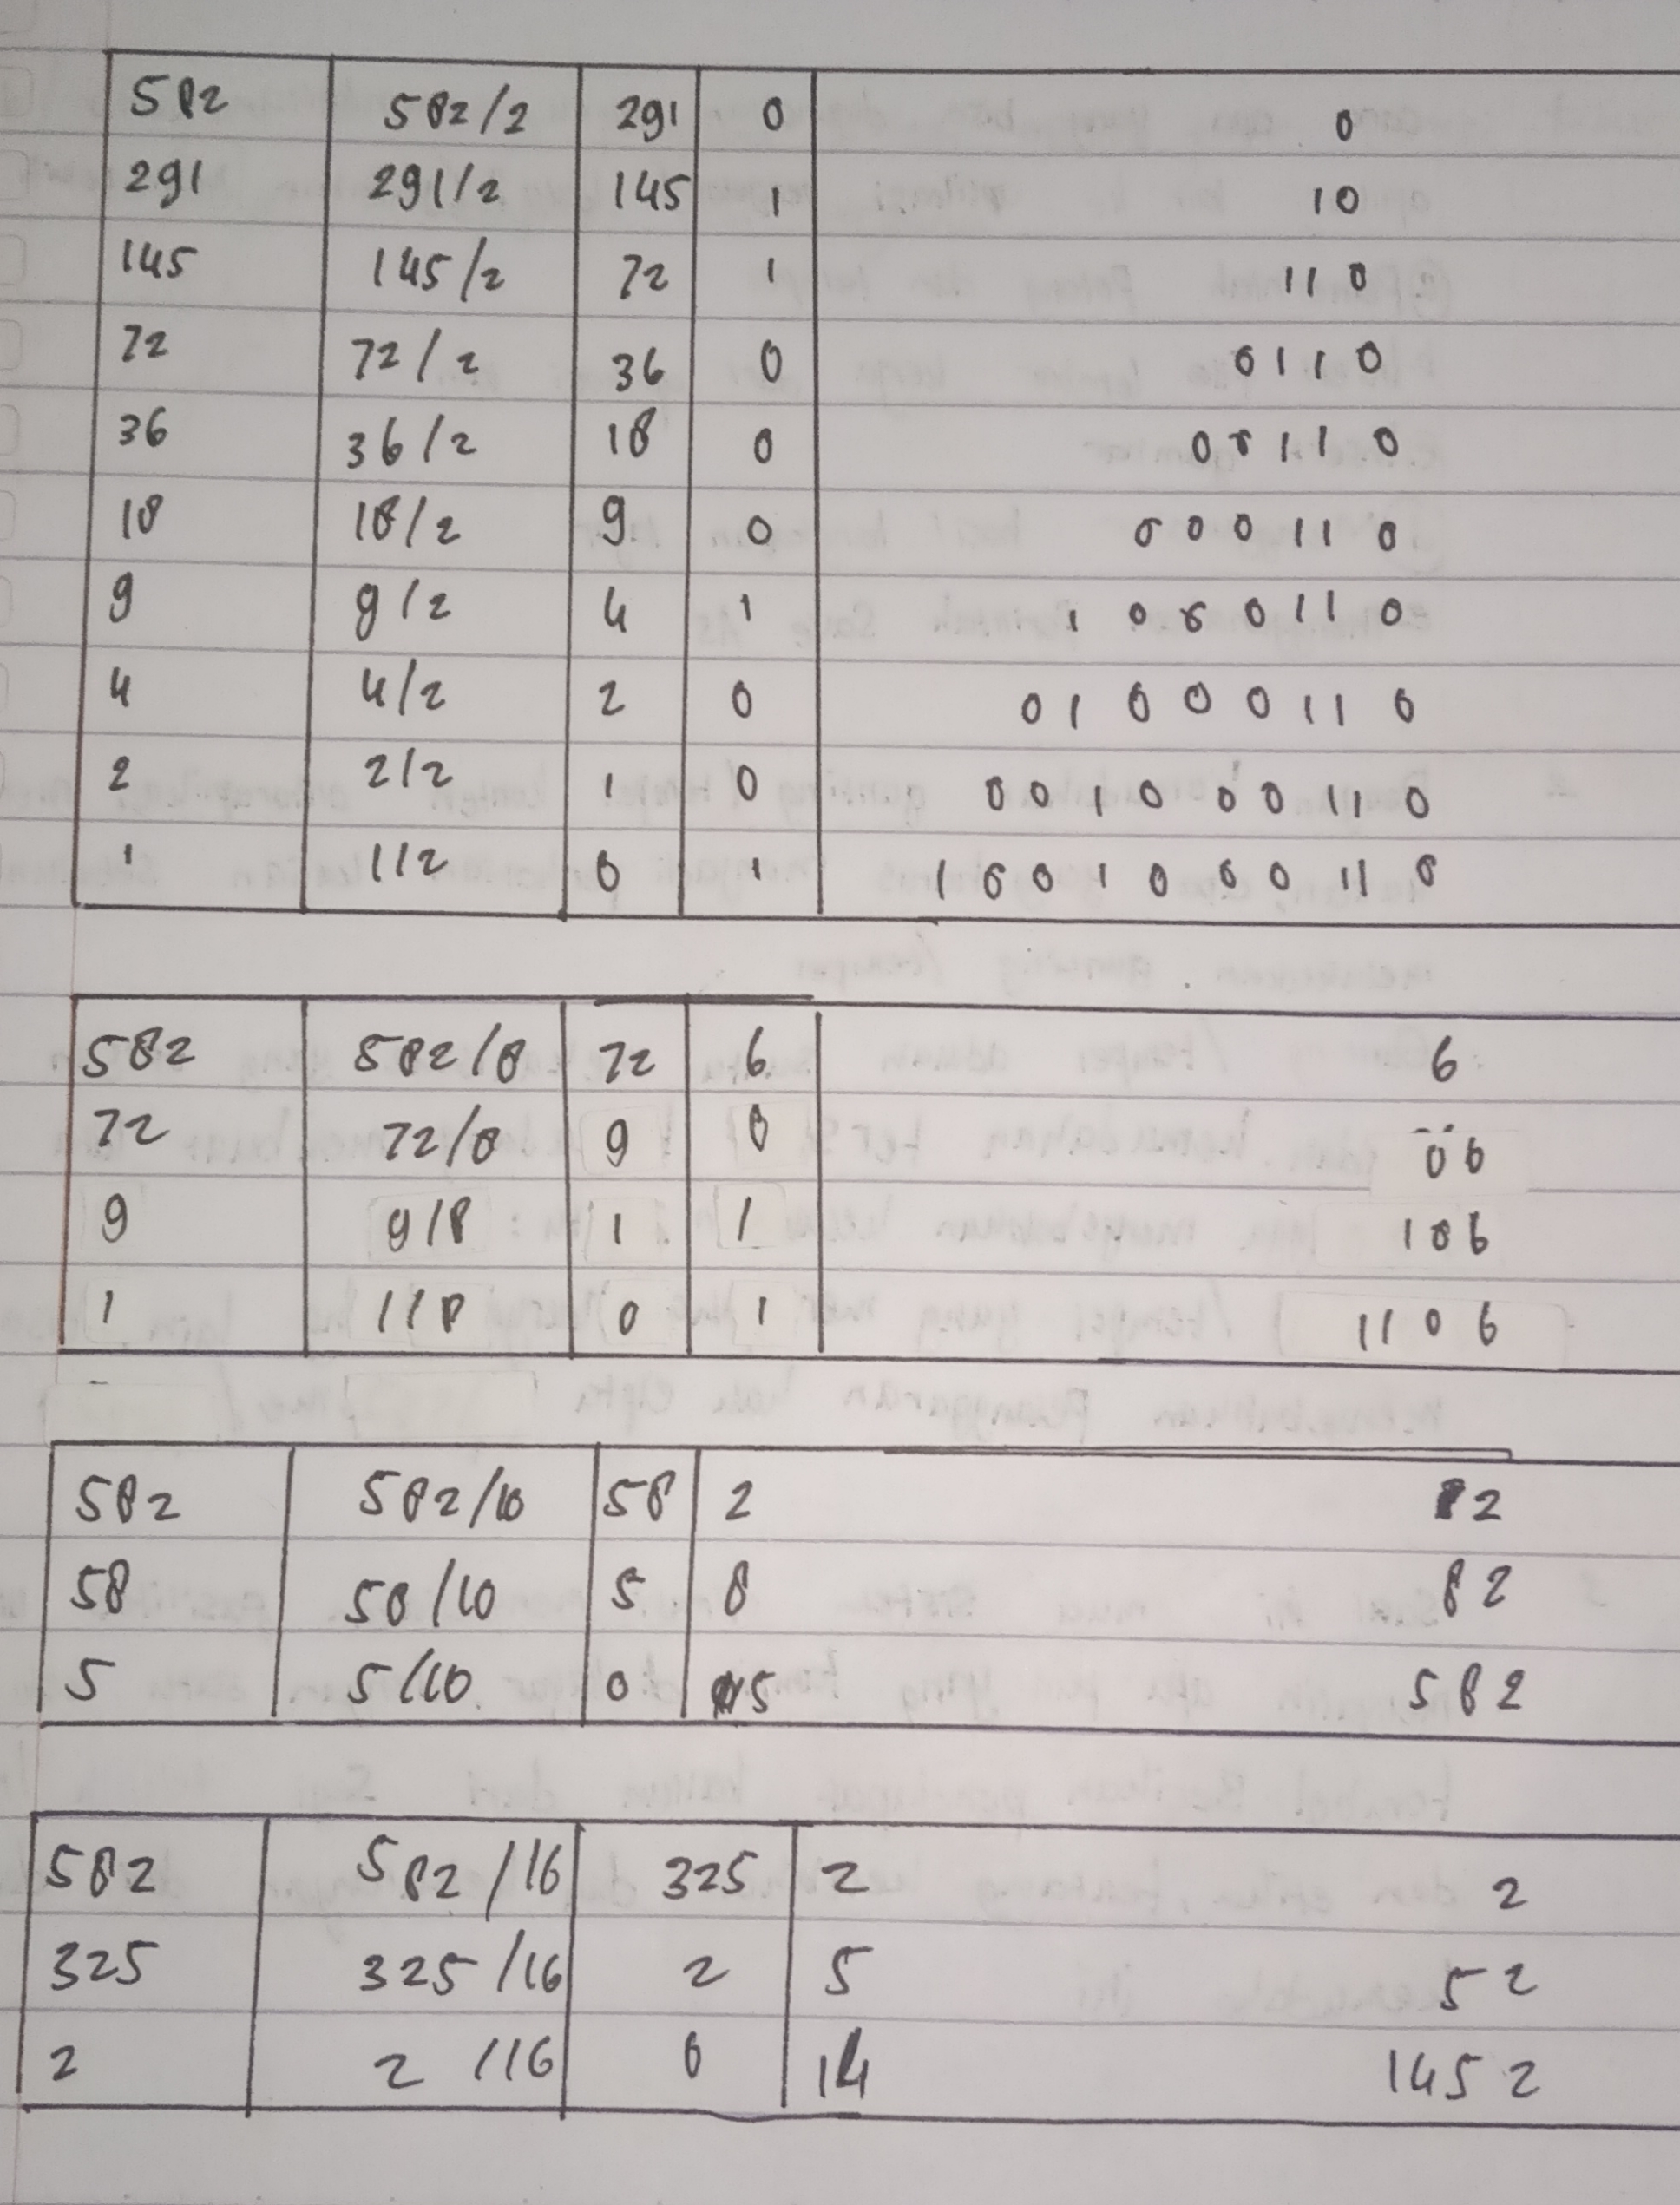 582 582/2 291 0 0
291 291/2 145 1 10
145 145/2 72 1 110
72 72/2 36 0 0110
36 36/2 18 0 00110
18 18/2 9 0 000110
9 9/2 4 1 1000110
4 4/2 2 0 01000110
2 2/2 1 0 001000110
1 1/2 0 1 1001000110
582 582/8 72 6 6
72 72/8 9 0 06
9 9/8 1 1 106
1 1/8 0 1 1106
582 582/10 58 2 2
58 58/10 5 8 82
5 5/10 0 5 582
582 582/16 325 2 2
325 325/16 2 5 52
2 2/16 0 14 1452